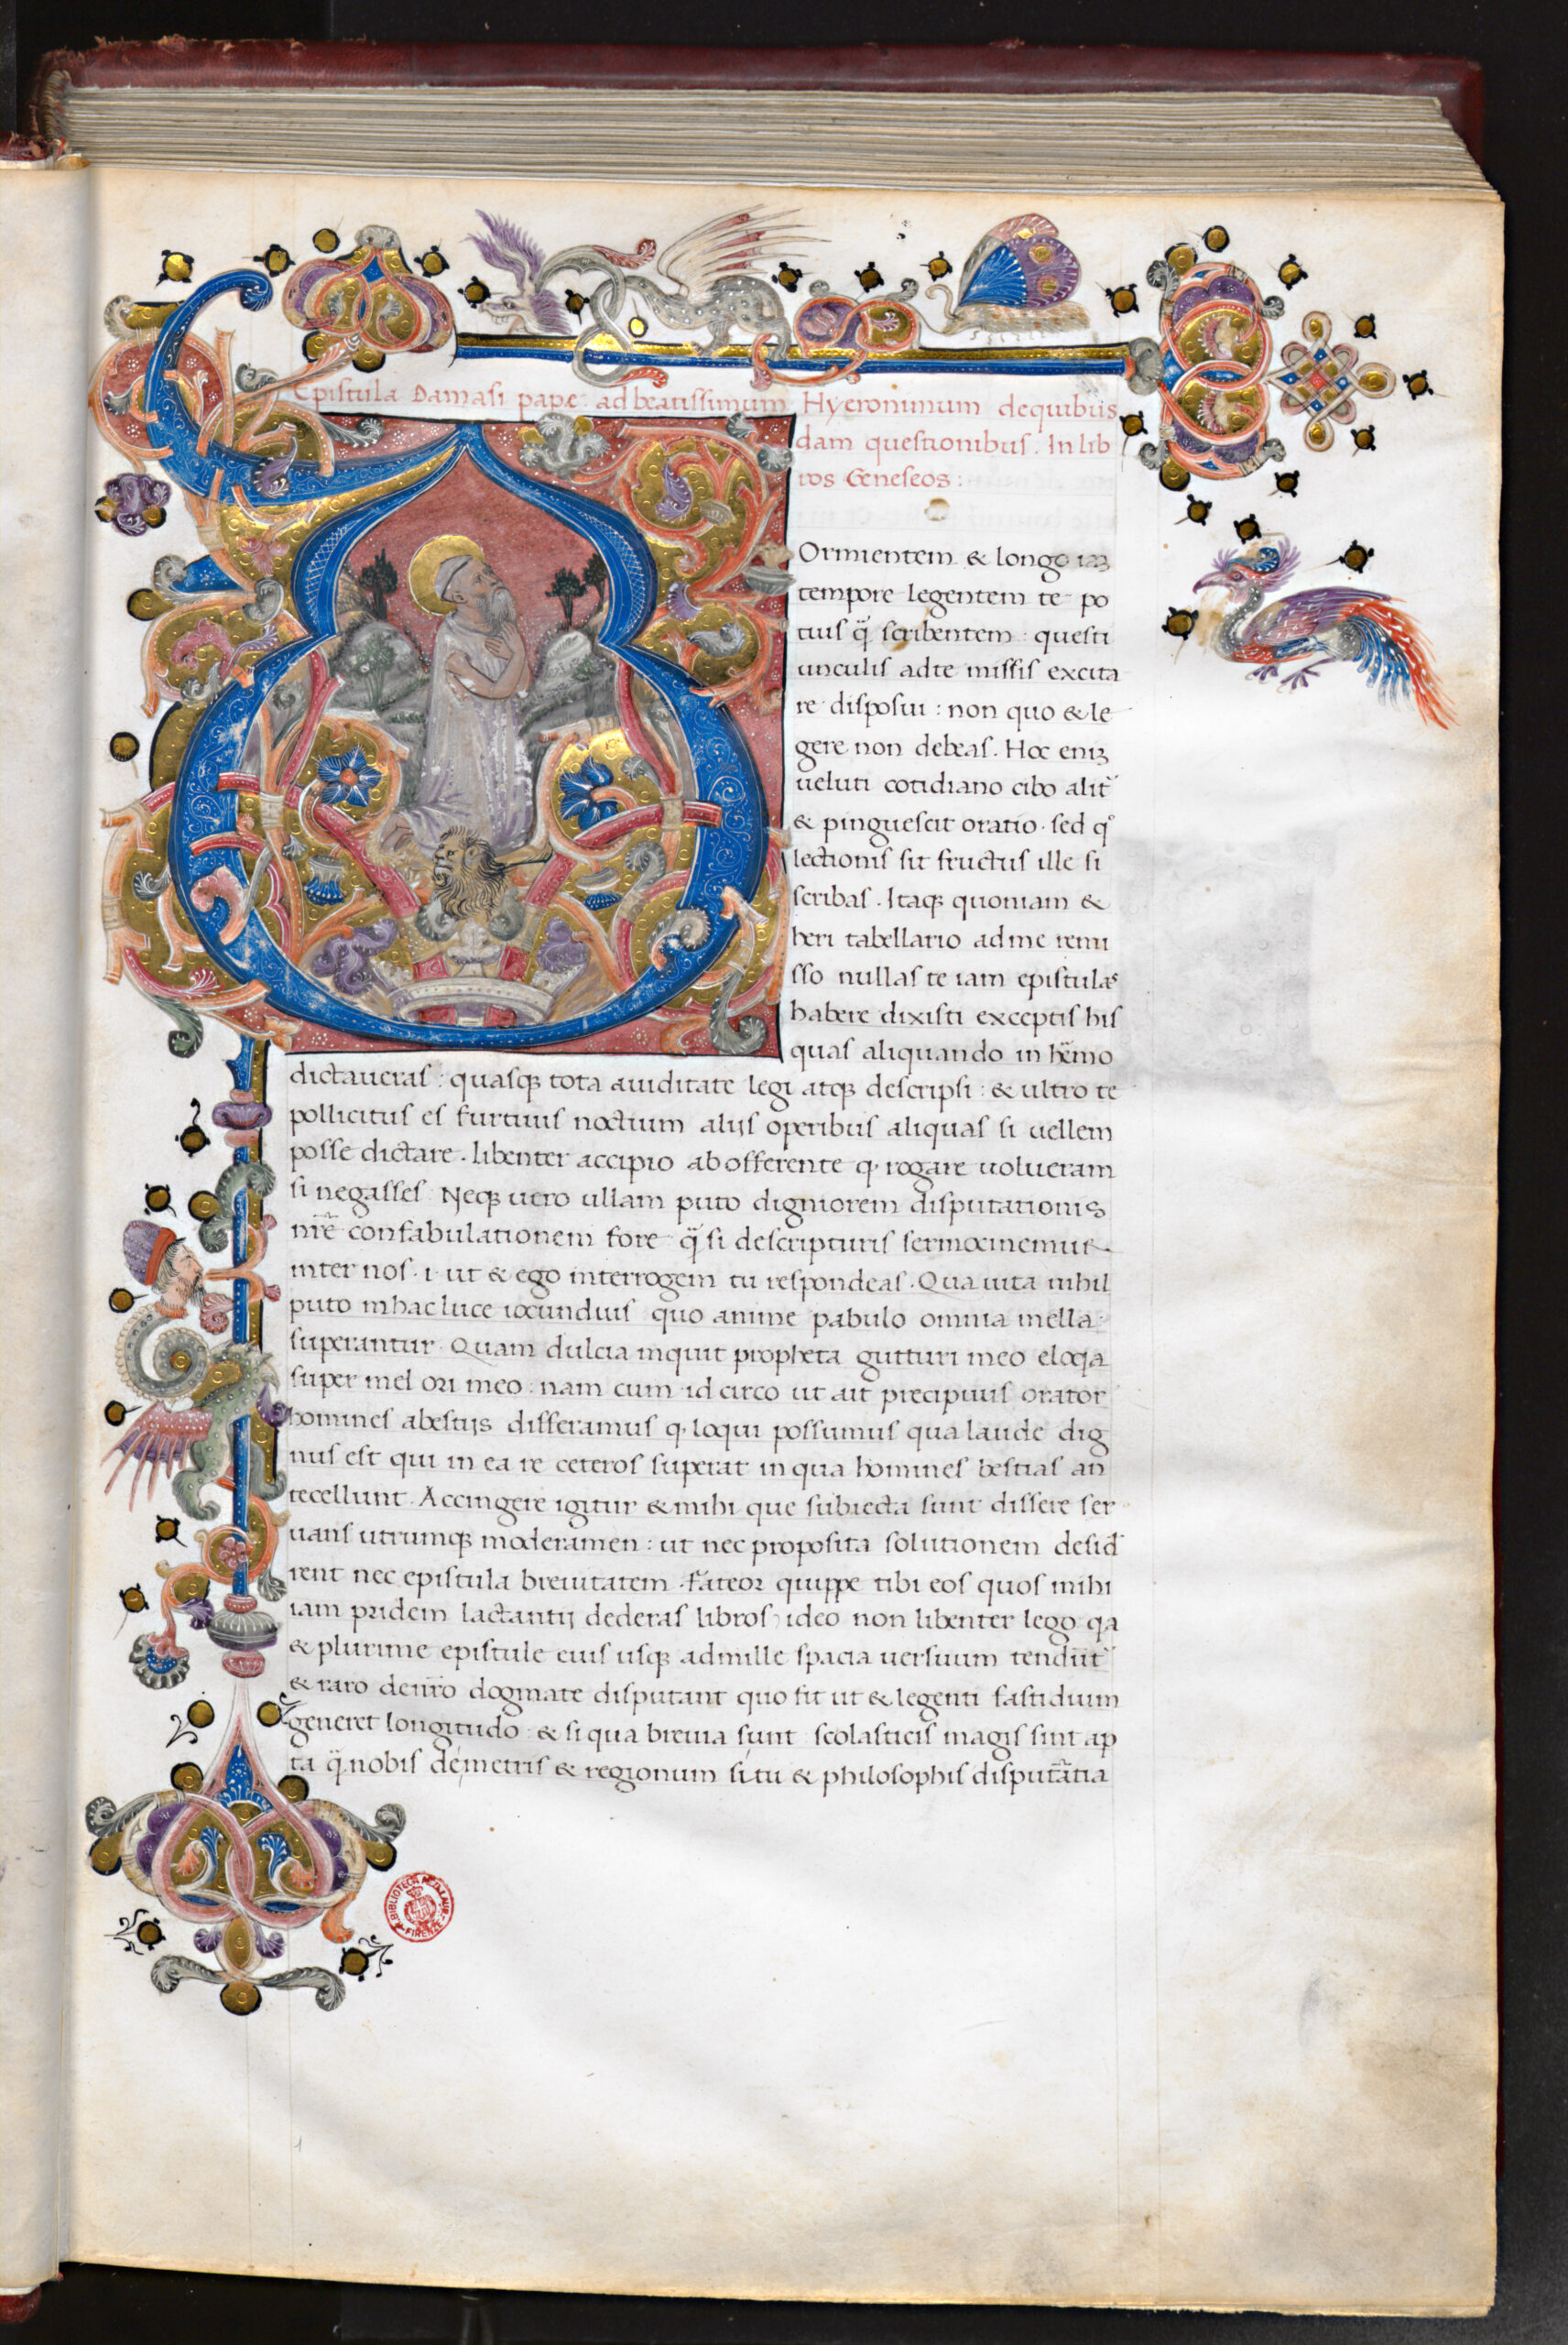 Epistula Damasi pape: ad beatissimum Hyeronimum de quibus
dam questionibus. In lib
ros Geneseos:
Ormientem & longo iaꝫ
tempore legentem te po
tius q̃ scribentem: questi
unculis ad te missis excita
re disposui: non quo & le
gere non debeas. Hoc eniꝫ
ueluti cotidiano cibo alit̃
& pinguescit oratio. sed qͦ
lectionis sit fructus ille si
scribas. Itaqꝫ quoniam &
heri tabellario ad me remi
sso nullas te iam epistulas
habere dixisti exceptis his
quas aliquando in hẽmo
dictaueras: quasqꝫ tota auiditate legi atqꝫ descripsi: & ultro te
pollicitus es furtiuis noctium alijs operibus aliquas si uellem
posse dictare. libenter accipio ab offerente q, rogare uolueram
si negasses. Neqꝫ uero ullam puto digniorem disputationis
nr̃e confabulationem fore q̃ si de scripturis sermocinemur
inter nos. i. ut & ego interrogem tu respondeas. Qua uita nihil
puto in hac luce iocundius quo anime pabulo omnia mella
superantur. Quam dulcia inquit propheta gutturi meo eloqa
super mel ori meo: nam cum id circo ut ait precipuus orator
homines a bestijs differamus q, loqui possumus qua laude dig
nus est qui in ea re ceteros superat in qua homines bestias an
tecellunt. Accingere igitur & mihi que subiecta sunt dissere ser
uans utrumqꝫ moderamen: ut nec proposita solutionem desid̃
rent nec epistula breuitatem. Fateor quippe tibi eos quos mihi
iam pridem lactantij dederas libros ideo non libenter lego qa
& plurime epistule eius usqꝫ ad mille spacia uersuum tendũt
& raro de nr̃o dogmate disputant quo fit ut & legenti fastidium
generet longitudo & si qua breuia sunt scolasticis magis sint ap
ta q̃ nobis de metris & regionum situ & philosophis disputãtia
BIBLIOTECA
FIRENZE
1